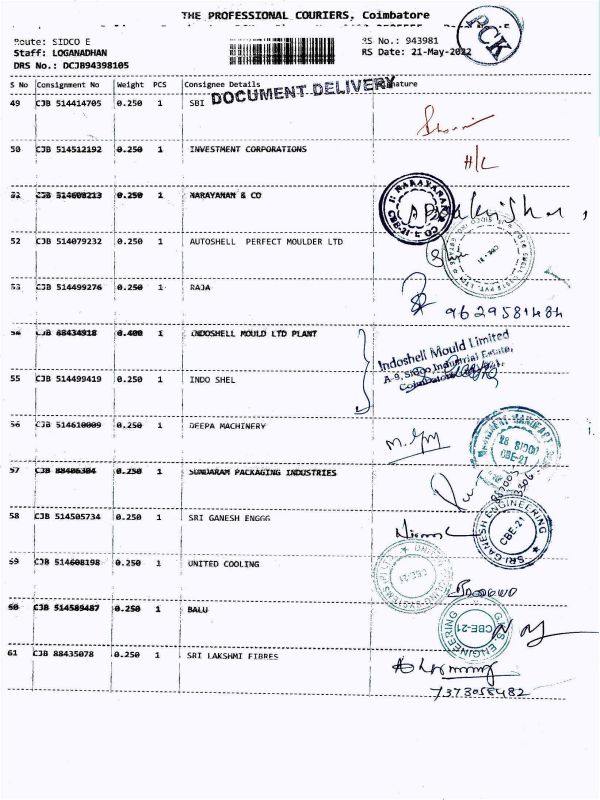 THE PROFESSIONAL COURIERS, Coimbatore
PCK
Route: SIDCO E
RS No.: 943981
Staff: LOGANADHAN
RS Date: 21-May-2022
DRS No.: DCJB94398105
S No Consignment No Weight PCS Consignee Details
DOCUMENT DELIVERY
49 CJB 514414705 0.250 1 SBI
50 CJB 514512192 0.250 1 INVESTMENT CORPORATIONS
H/C
51 CJB 514608213 0.250 1 NARAYANAN & CO
NARAYANAN & CO CBE-21
52 CJB 514079232 0.250 1 AUTOSHELL PERFECT MOULDER LTD
53 CJB 514499276 0.250 1 RAJA
9629581484
54 CJB 88434918 0.400 1 INDOSHELL MOULD LTD PLANT
Indoshell Mould Limited
A-9, Sidco Industrial Estate,
55 CJB 514499419 0.250 1 INDO SHEL
56 CJB 514610009 0.250 1 DEEPA MACHINERY
28 SIDCO
CBE-21
57 CJB 88406304 0.250 1 SUNDARAM PACKAGING INDUSTRIES
58 CJB 514505734 0.250 1 SRI GANESH ENGGG
SRI GANESH ENGINEERING CBE-21
59 CJB 514608198 0.250 1 UNITED COOLING
CBE-21
60 CJB 514589487 0.250 1 BALU
ENGINEERING CBE-21
61 CJB 88435078 0.250 1 SRI LAKSHMI FIBRES
7373058482